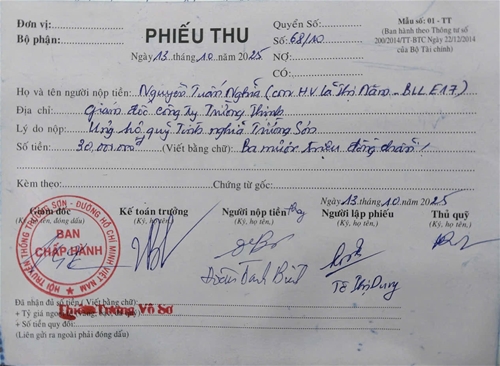 Đơn vị:
Bộ phận:
PHIẾU THU
Ngày 13 tháng 10 năm 2025
Quyển Số:
Số: 68/10
NỢ:
CÓ:
Mẫu số: 01 - TT
(Ban hành theo Thông tư số
200/2014/TT-BTC Ngày 22/12/2014
của Bộ Tài chính)
Họ và tên người nộp tiền: Nguyễn Tuấn Nghĩa (con H.V Lê Thị Năm - BLL E17)
Địa chỉ: Giám đốc công ty Trường Thịnh
Lý do nộp: Ủng hộ quỹ Tình nghĩa Trường Sơn
Số tiền: 30.000.000đ (Viết bằng chữ) Ba mươi triệu đồng chẵn
Kèm theo: Chứng từ gốc:
Ngày 13 tháng 10 năm 2025
Giám đốc
(Ký, họ tên, đóng dấu)
Kế toán trưởng
(Ký, họ tên)
Người nộp tiền
(Ký, họ tên)
Người lập phiếu
(Ký, họ tên)
Thủ quỹ
(Ký, họ tên)
HỘI TRUYỀN THỐNG TRƯỜNG SƠN - ĐƯỜNG HỒ CHÍ MINH VIỆT NAM
BAN
CHẤP HÀNH
Tế Thị Dung
Đã nhận đủ số tiền (Viết bằng chữ):
Tướng Võ Sở
+ Tỷ giá ngoại
+ Số tiền quy đổi:
(Liên gửi ra ngoài phải đóng dấu)